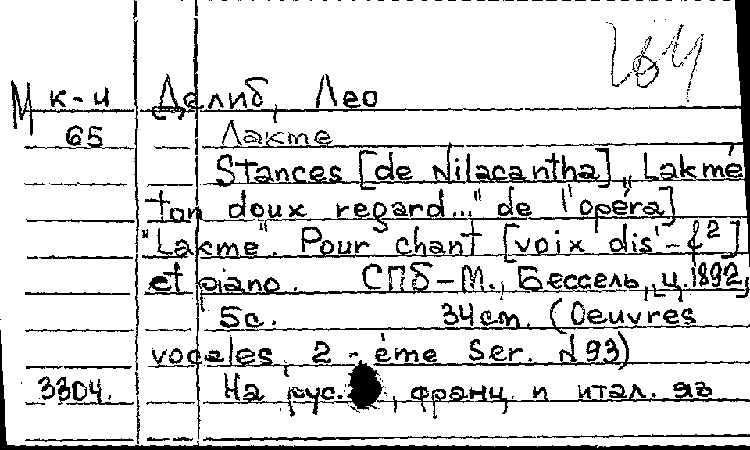 164
М к-4 Делиб, Лео
65 Лакме
Stances [de Nilacantha] „Lakmé
ton doux regard..." de l'opéra]
"Lakme". Pour chant [voix dis'-f²]
et piano. СПб-М., Бессель, ц. 1892,
5с. 34cm. (Oeuvres
vocales, 2-ème Ser. N93)
3304. На рус., франц. и итал. яз